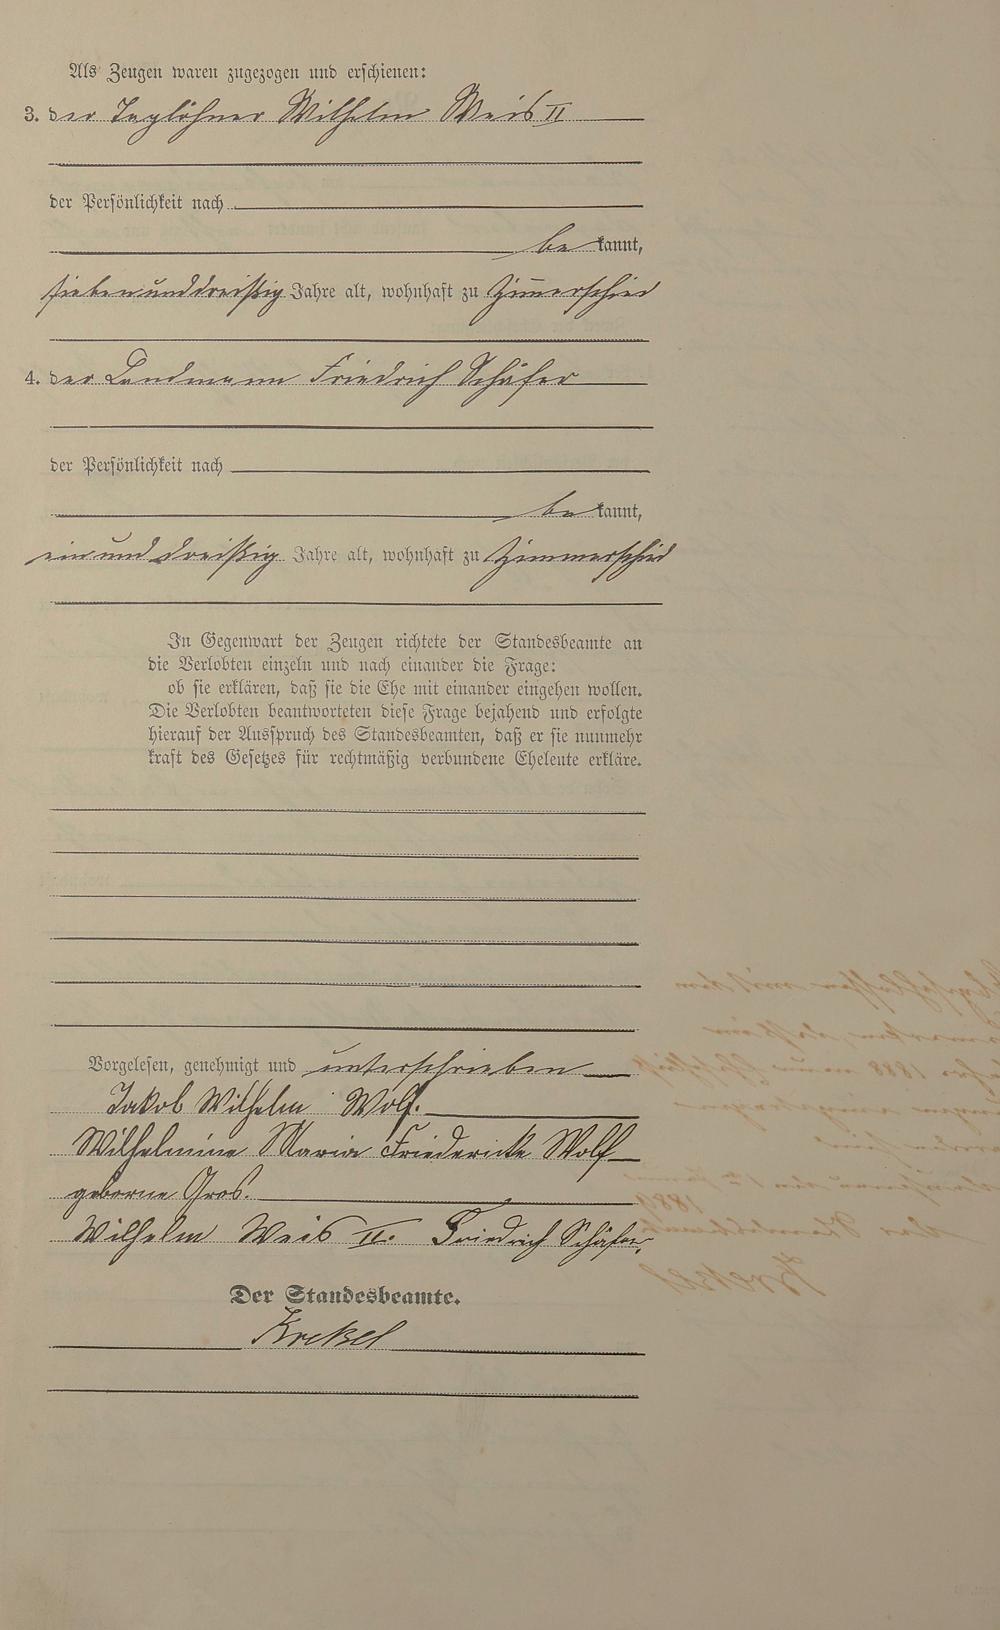 Als Zeugen waren zugezogen und erschienen:
3. der Taglöhner Wilhelm Weis II
der Persönlichkeit nach
be kannt,
siebenunddreißig Jahre alt, wohnhaft zu Zimmerschied
4. der Landmann Friedrich Schäfer
der Persönlichkeit nach
be kannt,
ein und dreißig Jahre alt, wohnhaft zu Zimmerschied
In Gegenwart der Zeugen richtete der Standesbeamte an
die Verlobten einzeln und nach einander die Frage:
ob sie erklären, daß sie die Ehe mit einander eingehen wollen.
Die Verlobten beantworteten diese Frage bejahend und erfolgte
hierauf der Ausspruch des Standesbeamten, daß er sie nunmehr
kraft des Gesetzes für rechtmäßig verbundene Eheleute erkläre.
Vorgelesen, genehmigt und unterschrieben
Jakob Wilhelm Wolf.
Wilhelmine Maria Friedericke Wolf
geborne Gros.
Wilhelm Weis II. Friedrich Schäfer.
Der Standesbeamte.
Krekel